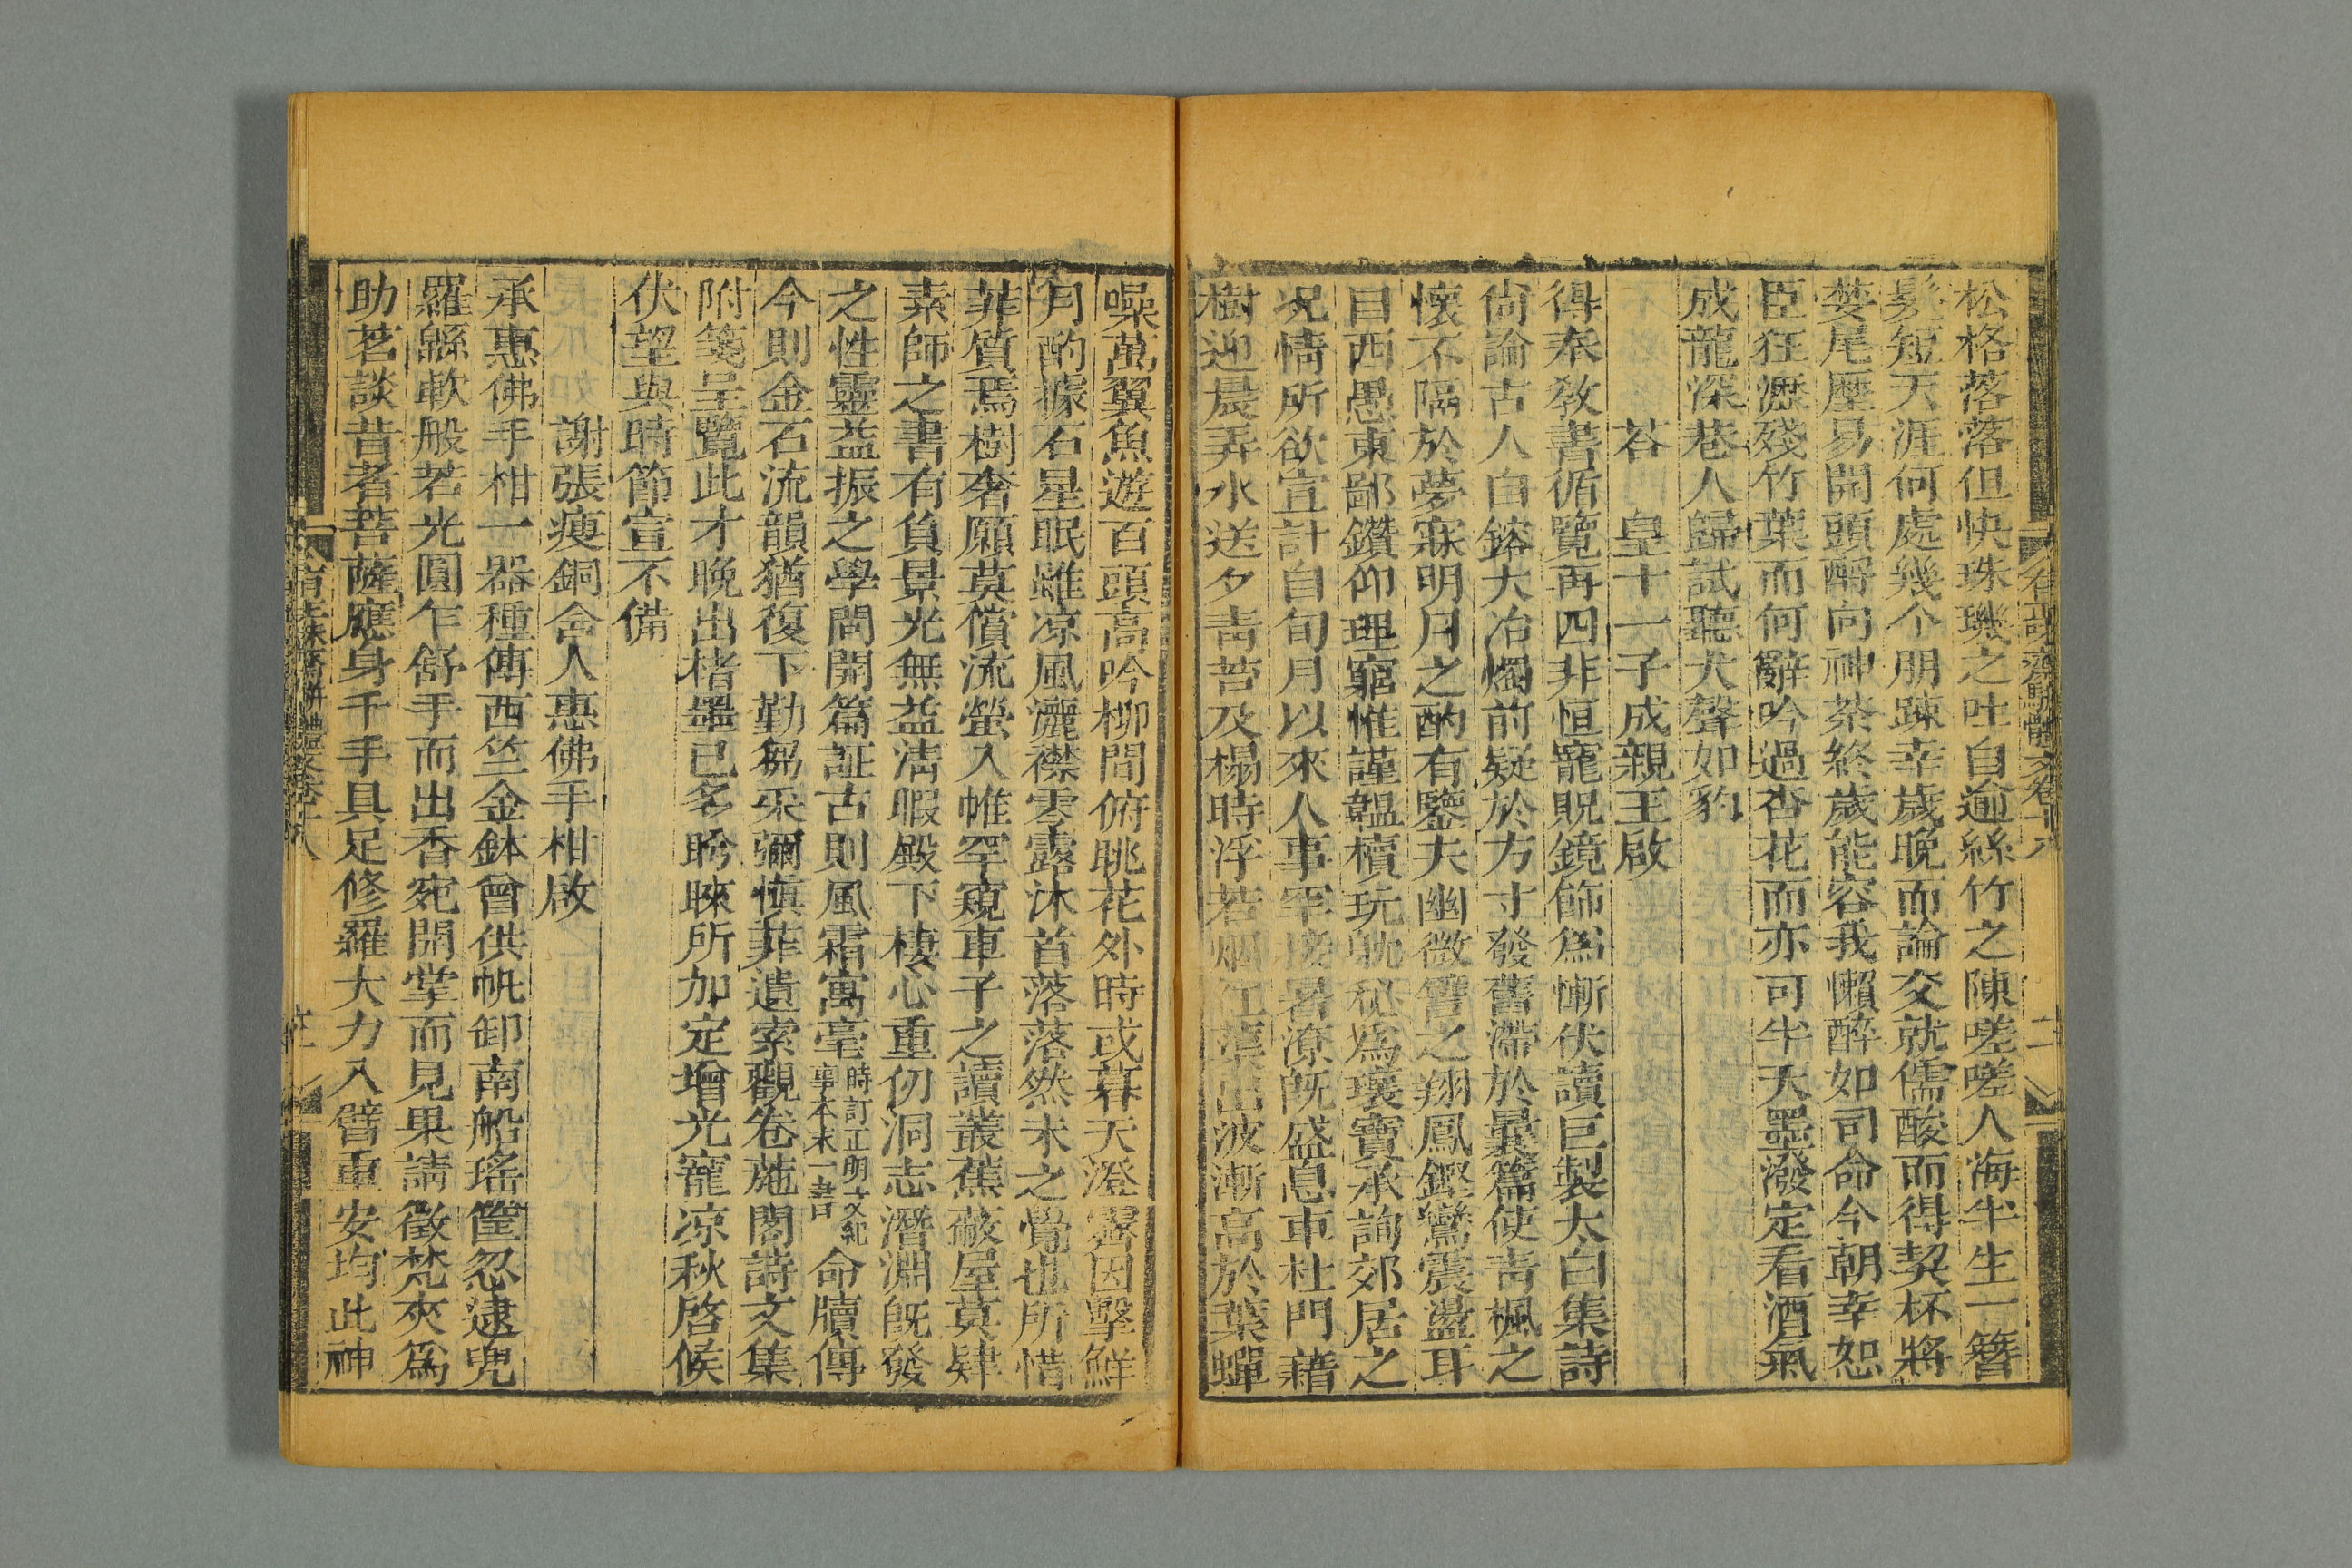 有正味齋駢體文卷十八
二
松格落落但快珠璣之吐自逾絲竹之陳嗟嗟人海半生一簪
髮短天涯何處幾个朋踈幸歲晚而論交就儒酸而得契杯將
婪尾壓易開頭酹向神荼終歲能容我懶醉如司命今朝幸恕
臣狂瀝殘竹葉而何辭吟過杏花而亦可半天墨潑定看酒氣
成龍深巷人歸試聽犬聲如豹
荅 皇十一子成親王啟
得奉教書循覽再四非恒寵貺鏡飾爲慚伏讀巨製太白集詩
尙論古人自鎔大冶燭前疑於方寸發舊滯於曩篇使靑楓之
懷不隔於夢寐明月之酌有鑒夫幽微簪之翔鳳鏗鸞震盪耳
目西愚東鄙鑽仰理窟惟謹韞櫝玩躭祕爲瓌寶承詢郊居之
况情所欲宣計自旬月以來人事罕接暑潦旣盛息車杜門藉
樹迎晨弄水送夕靑苔及榻時浮若烟紅蕖出波漸高於葉蟬
噪萬翼魚遊百頭高吟柳間俯眺花外時或暮天澄霽因擊鮮
月酌據石星眠雖凉風灑襟零露沐首落落然未之覺也所惜
菲質焉樹奢願莫償流螢入帷罕窺車子之讀叢蕉蔽屋莫肄
素師之書有負景光無益淸暇殿下棲心重仞洞志潛淵旣發
之性靈益振之學問開篇証古則風霜寓毫時訂正明史紀事本末一書日命牘傳
今則金石流韻猶復下勤芻采彌愼菲遺索觀卷葹閣詩文集
附箋呈覽此才晚出楮墨已多盻睞所加定增光寵凉秋啓候
伏望與時節宣不備
謝張瘦銅舍人惠佛手柑啟
承惠佛手柑一器種傳西竺金鉢曾供帆卸南船瑤筐忽逮兜
羅緜軟般若光圓乍舒手而出香宛開掌而見果請徵梵夾爲
助茗談昔者菩薩應身千手具足修羅大力入臂重安均此神
有正味齋駢體文卷十八